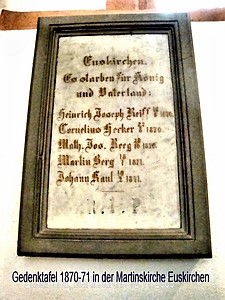 Euskirchen.
Es starben für König
und Vaterland:
Heinrich Joseph Reiff 1870.
Cornelius Hecker 1870.
Math. Jos. Reeg 1870.
Martin Berg 1871.
Johann Kaul 1871.
R. I. P
Gedenktafel 1870-71 in der Martinskirche Euskirchen